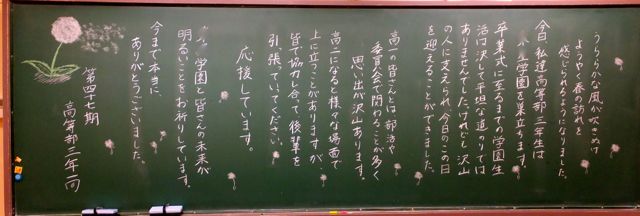 うららかな風が吹きぬけ
ようやく春の訪れを
感じられるようになりました。
今日、私達高等部三年生は
学園を巣立ちます。
卒業式に至るまでの学園生
活は決して平坦な道のりでは
ありませんでした。けれども沢山
の人に支えられ、今日のこの日
を迎えることができました。
高一の皆さんとは部活や
委員会で関わることが多く
思い出が沢山あります。
高二になると様々な場面で
上に立つことがありますが、
皆で協力し合って、後輩を
引っ張っていてください。
応援しています。
学園と皆さんの未来が
明るいことをお祈りしています。
今まで本当に
ありがとうございました。
第四十七期
高等部三年一同